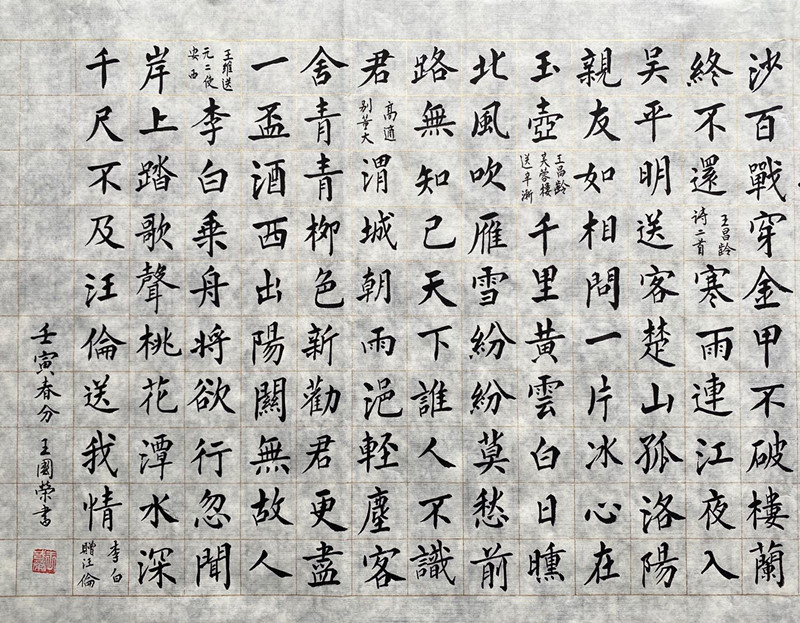 沙百戰穿金甲不破樓蘭
終不還
王昌齡
诗二首
寒雨連江夜入
吴平明送客楚山孤洛陽
親友如相問一片冰心在
玉壺
王昌齡
芙蓉樓
送辛漸
千里黃雲白日曛
北風吹雁雪紛紛莫愁前
路無知己天下誰人不識
君
高適
别董大
渭城朝雨浥輕塵客
舍青青柳色新勸君更盡
一盃酒西出陽關無故人
王維送
元二使
安西
李白乘舟将欲行忽聞
岸上踏歌聲桃花潭水深
千尺不及汪倫送我情
李白
贈汪倫
壬寅春分 王國榮書